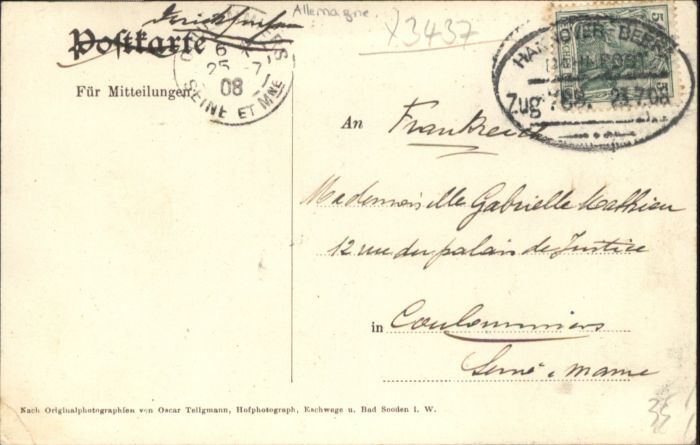 Allemagne.
Drucksache
Postkarte
X3437
6
25-7
08
SEINE ET MNE
HANNOVER-
BAHNPOST
Zug 23.7.08
5
Für Mitteilungen
An Frankreich
Mademoiselle Gabrielle Mathieu
12 rue du palais de Justice
in Coulommiers
Seine & Marne
35
Nach Originalphotographien von Oscar Tellgmann, Hofphotograph, Eschwege u. Bad Sooden i. W.